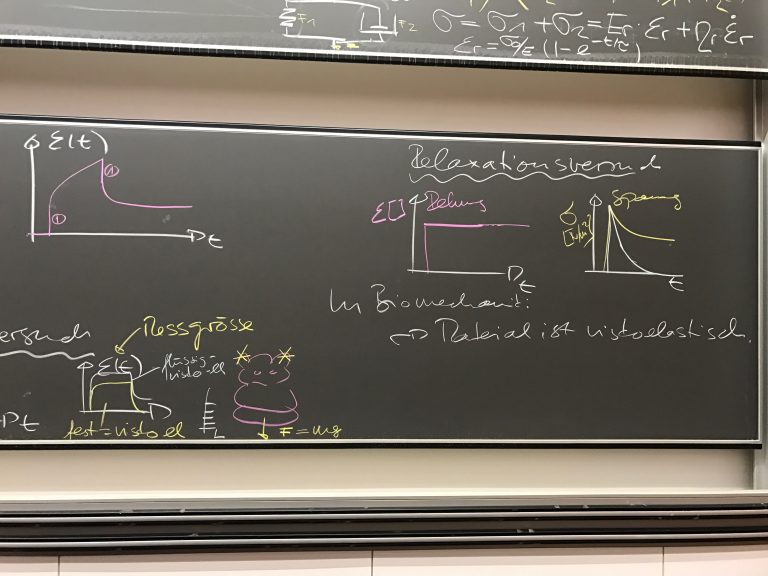 F1
F2
σ = σ1 + σ2 = Er · εr + ηr ε̇r
εr = σ0/E (1 - e^-t/τ)
ε(t)
①
①
t
Relaxationsversuch
ε[]
Dehnung
t
σ
[N/m²]
Spannung
t
In Biomechanik:
⇨ Material ist viskoelastisch.
ersuch
Messgrösse
ε(t)
flüssig-
visko-el
t
fest-visko el
L
F = mg